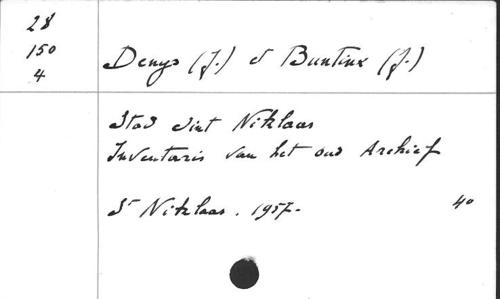 28
150
4
Denys (J.) & Buntinx (J.)
Stad Sint Niklaas
Inventaris van het oud Archief
St Niklaas. 1957.
4o